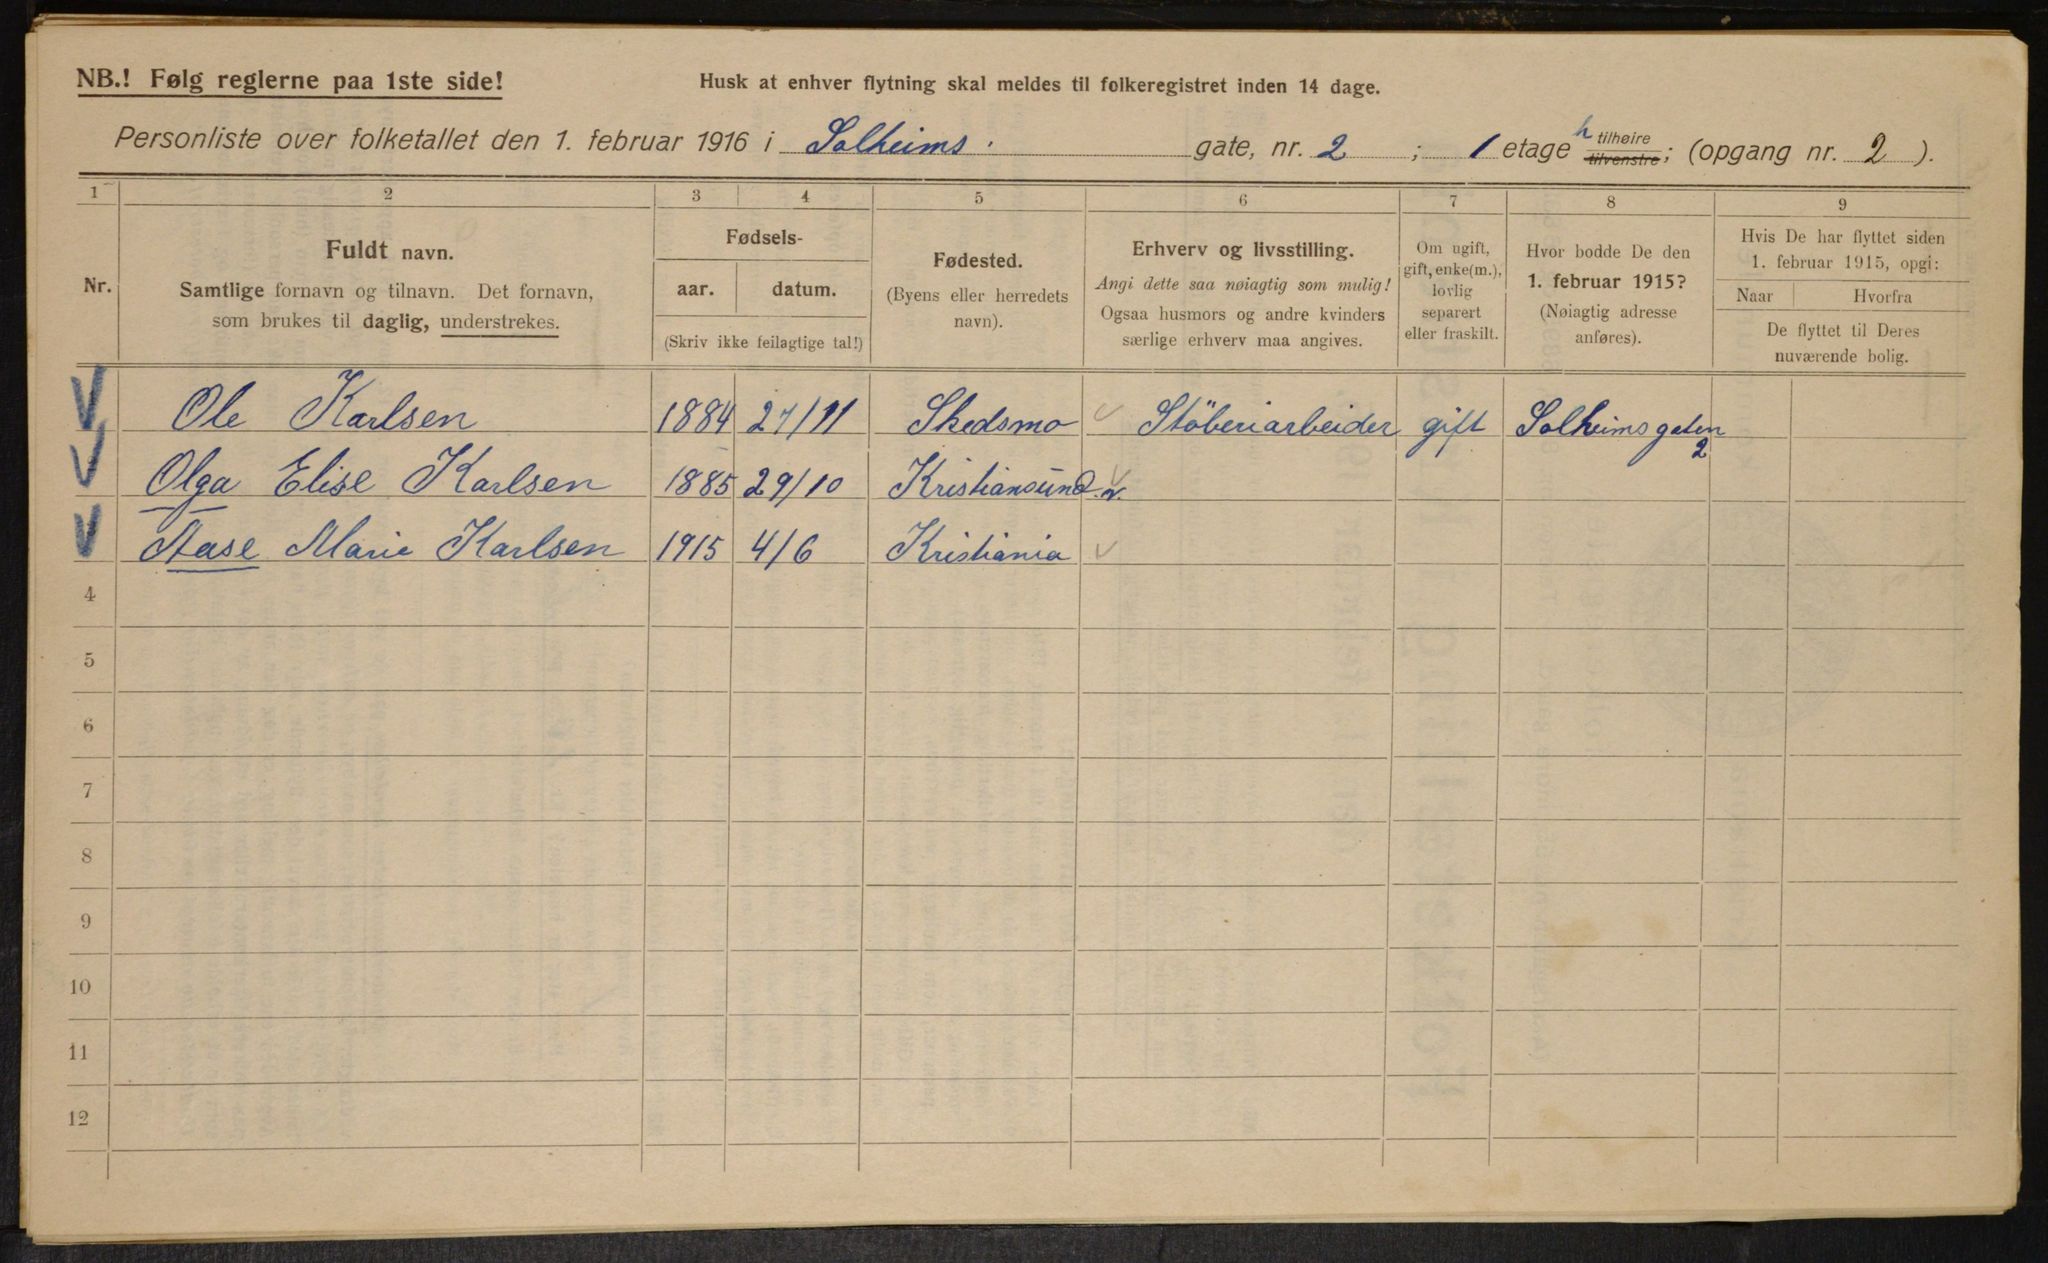 NB.! Følg reglerne paa 1ste side!
Husk at enhver flytning skal meldes til folkeregistret inden 14 dage.
Personliste over folketallet den 1. februar 1916 i Solheims. gate, nr. 2 ; 1 etage h tilhøire tilvenstre; (opgang nr. 2 ).
1 2 3 4 5 6 7 8 9
Nr.
Fuldt navn.
Samtlige fornavn og tilnavn. Det fornavn,
som brukes til daglig, understrekes.
Fødsels-
aar. datum.
(Skriv ikke feilagtige tal!)
Fødested.
(Byens eller herredets
navn).
Erhverv og livsstilling.
Angi dette saa nøiagtig som mulig!
Ogsaa husmors og andre kvinders
særlige erhverv maa angives.
Om ugift,
gift, enke(m.),
lovlig
separert
eller fraskilt.
Hvor bodde De den
1. februar 1915?
(Nøiagtig adresse
anføres).
Hvis De har flyttet siden
1. februar 1915, opgi:
Naar Hvorfra
De flyttet til Deres
nuværende bolig.
Ole Karlsen 1884 27/11 Skedsmo Stöberiarbeider gift Solheimsgaten
2
Olga Elise Karlsen 1885 29/10 Kristiansund.n.
Aase Marie Karlsen 1915 4/6 Kristiania
4
5
6
7
8
9
10
11
12